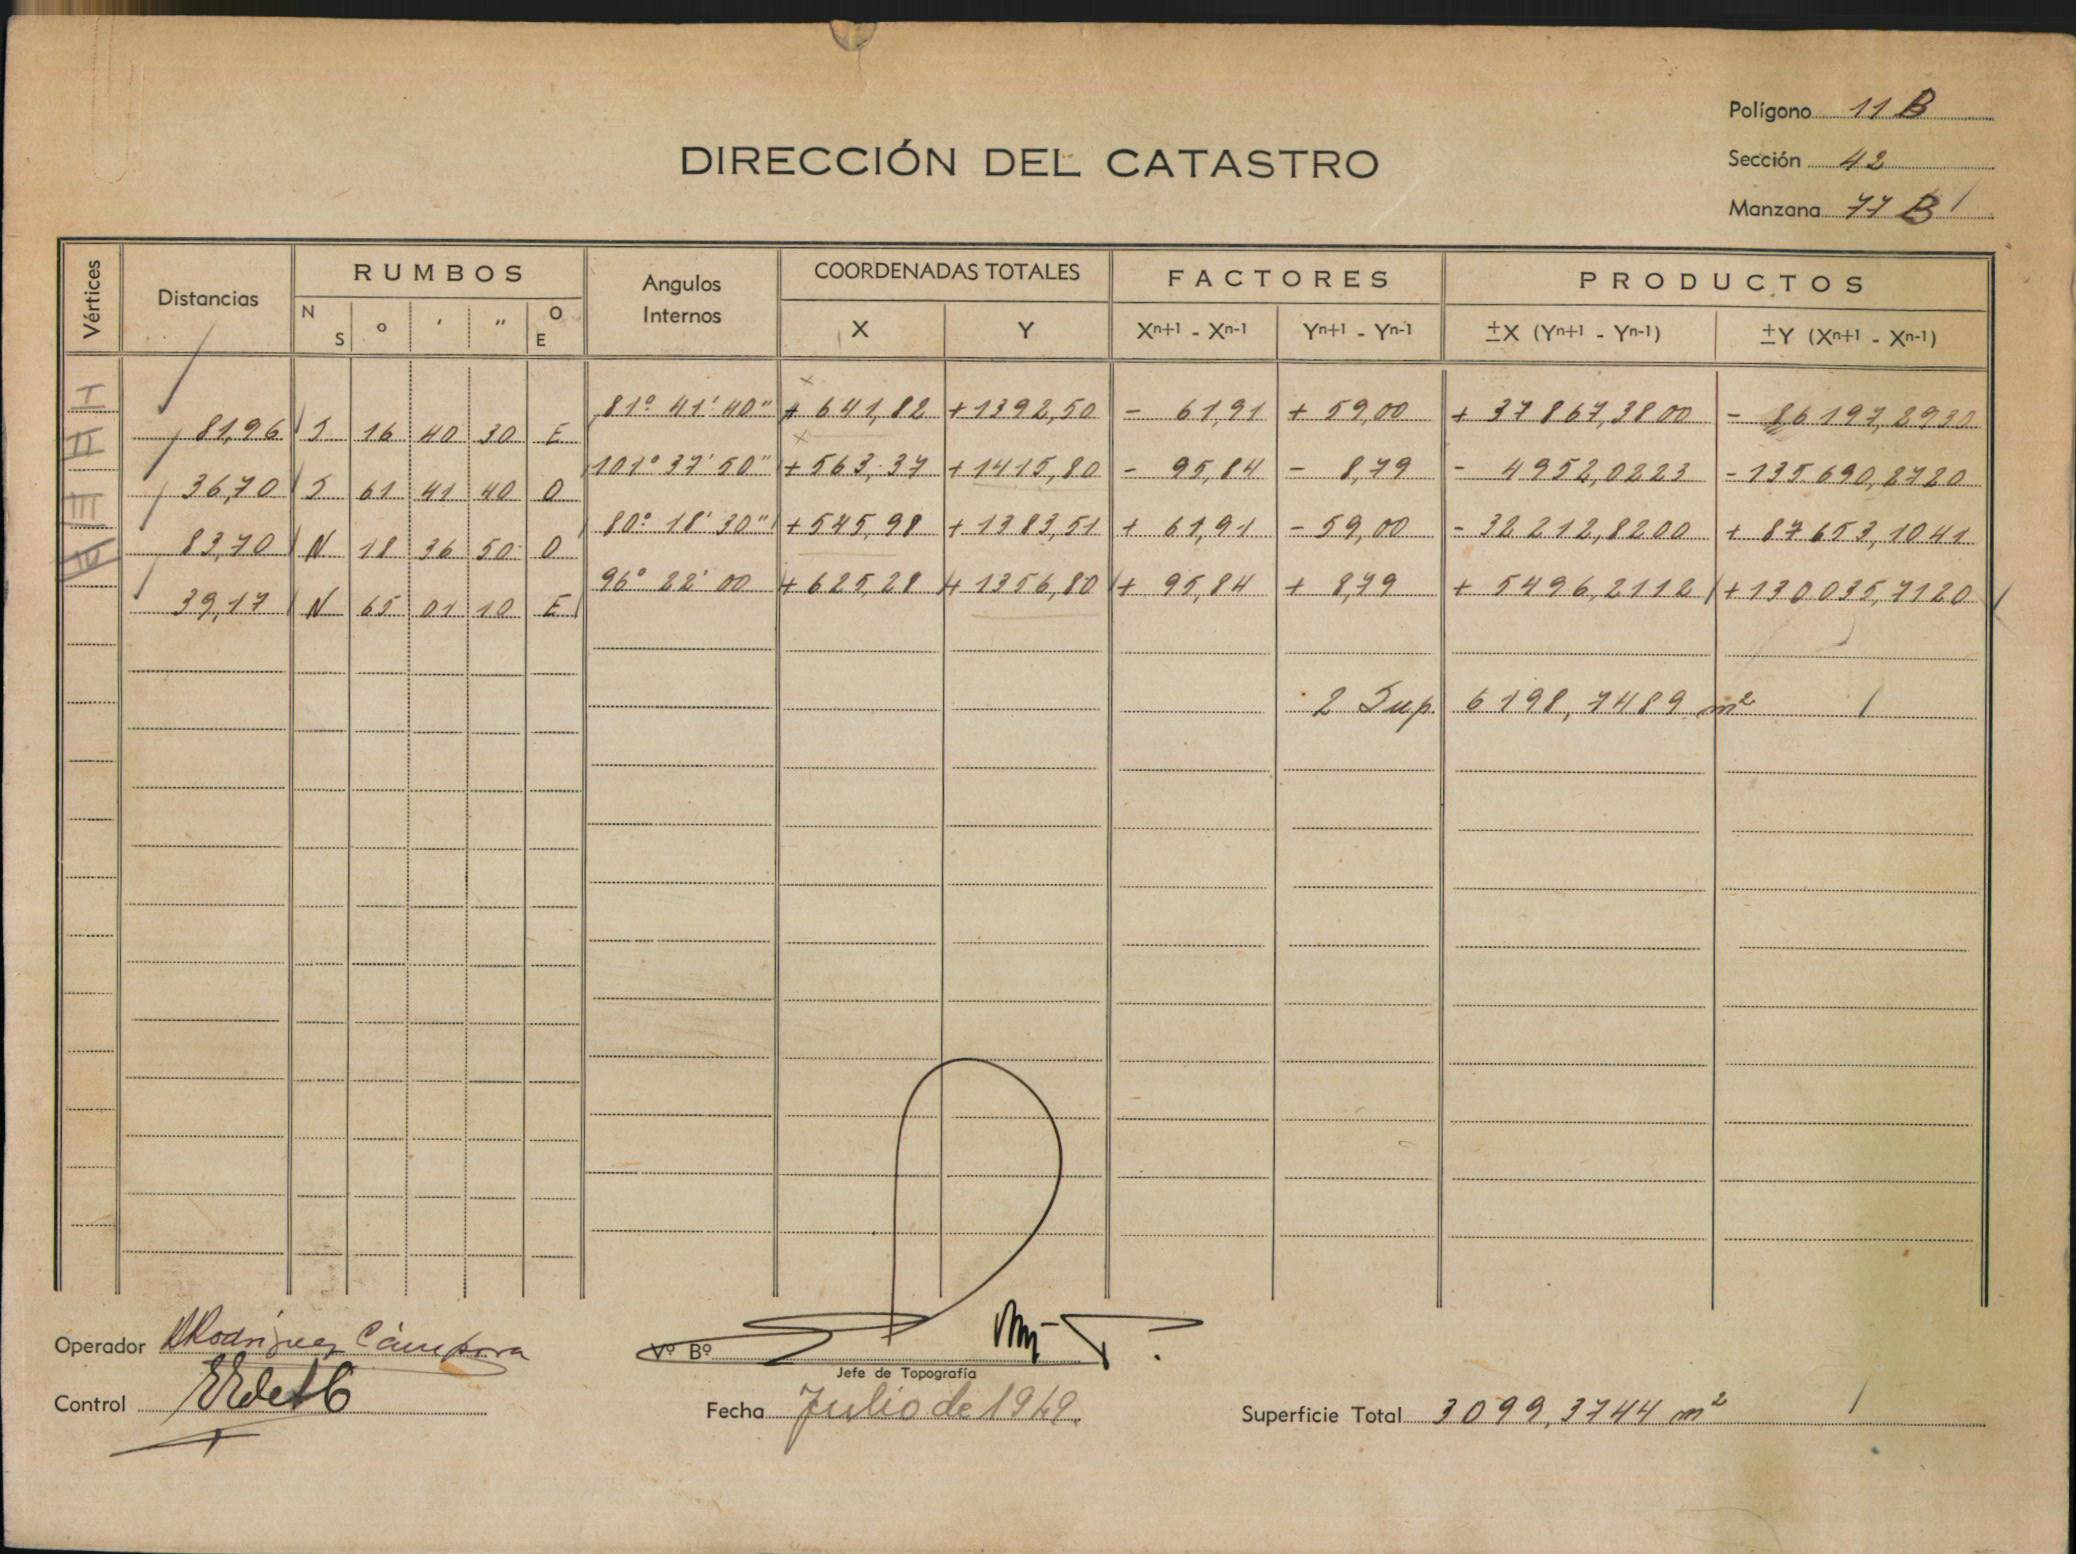 Polígono 11 B
Sección 42
Manzana 77 B
DIRECCIÓN DEL CATASTRO
Vértices Distancias RUMBOS Angulos Internos COORDENADAS TOTALES FACTORES PRODUCTOS
N S ° ' " O E X Y Xn+1 - Xn-1 Yn+1 - Yn-1 ±X (Yn+1 - Yn-1) ±Y (Xn+1 - Xn-1)
I 81° 41' 40" + 641,82 +1392,50 - 61,91 + 59,00 + 37867,3800 - 86197,2930
81,96 S 16 40 30 E
II 101° 37' 50" +563,37 +1415,80 - 95,84 - 8,79 - 4952,0223 -135.690,2720
36,70 S 61 41 40 O
III 80° 18' 30" +545,98 +1383,51 + 61,91 - 59,00 - 32212,8200 + 87653,1041
83,70 N 18 36 50 O
IV 96° 22' 00 + 625,28 + 1356,80 + 95,84 + 8,79 + 5496,2112 +130035,7120
39,17 N 65 01 10 E
2 Sup. 6198,7489 m²
Operador Rodriguez Cámpora
Vº Bº
Jefe de Topografía
Control
Fecha Julio de 1949.
Superficie Total 3099,3744 m²